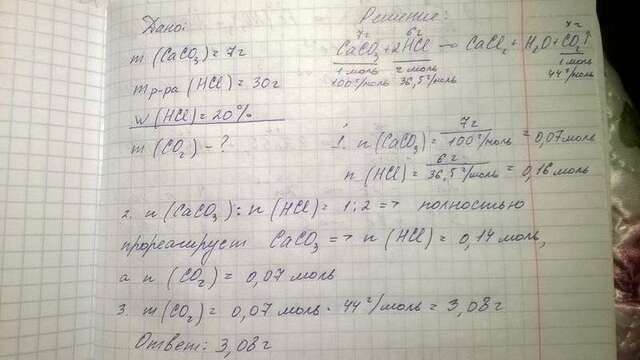 Дано:
m (CaCO₃) = 7г
m р-ра (HCl) = 30г
w (HCl) = 20%
m (CO₂) - ?
Решение:
7г 6г xг
CaCO₃ + 2HCl → CaCl₂ + H₂O + CO₂↑
1 моль 2 моль 1 моль
100 г/моль 36,5 г/моль 44 г/моль
1. n (CaCO₃) = 7г / 100 г/моль = 0,07 моль
n (HCl) = 6г / 36,5 г/моль = 0,16 моль
2. n (CaCO₃) : n (HCl) = 1:2 => полностью
прореагирует CaCO₃ => n (HCl) = 0,14 моль,
а n (CO₂) = 0,07 моль
3. m (CO₂) = 0,07 моль · 44 г/моль = 3,08г
Ответ: 3,08г